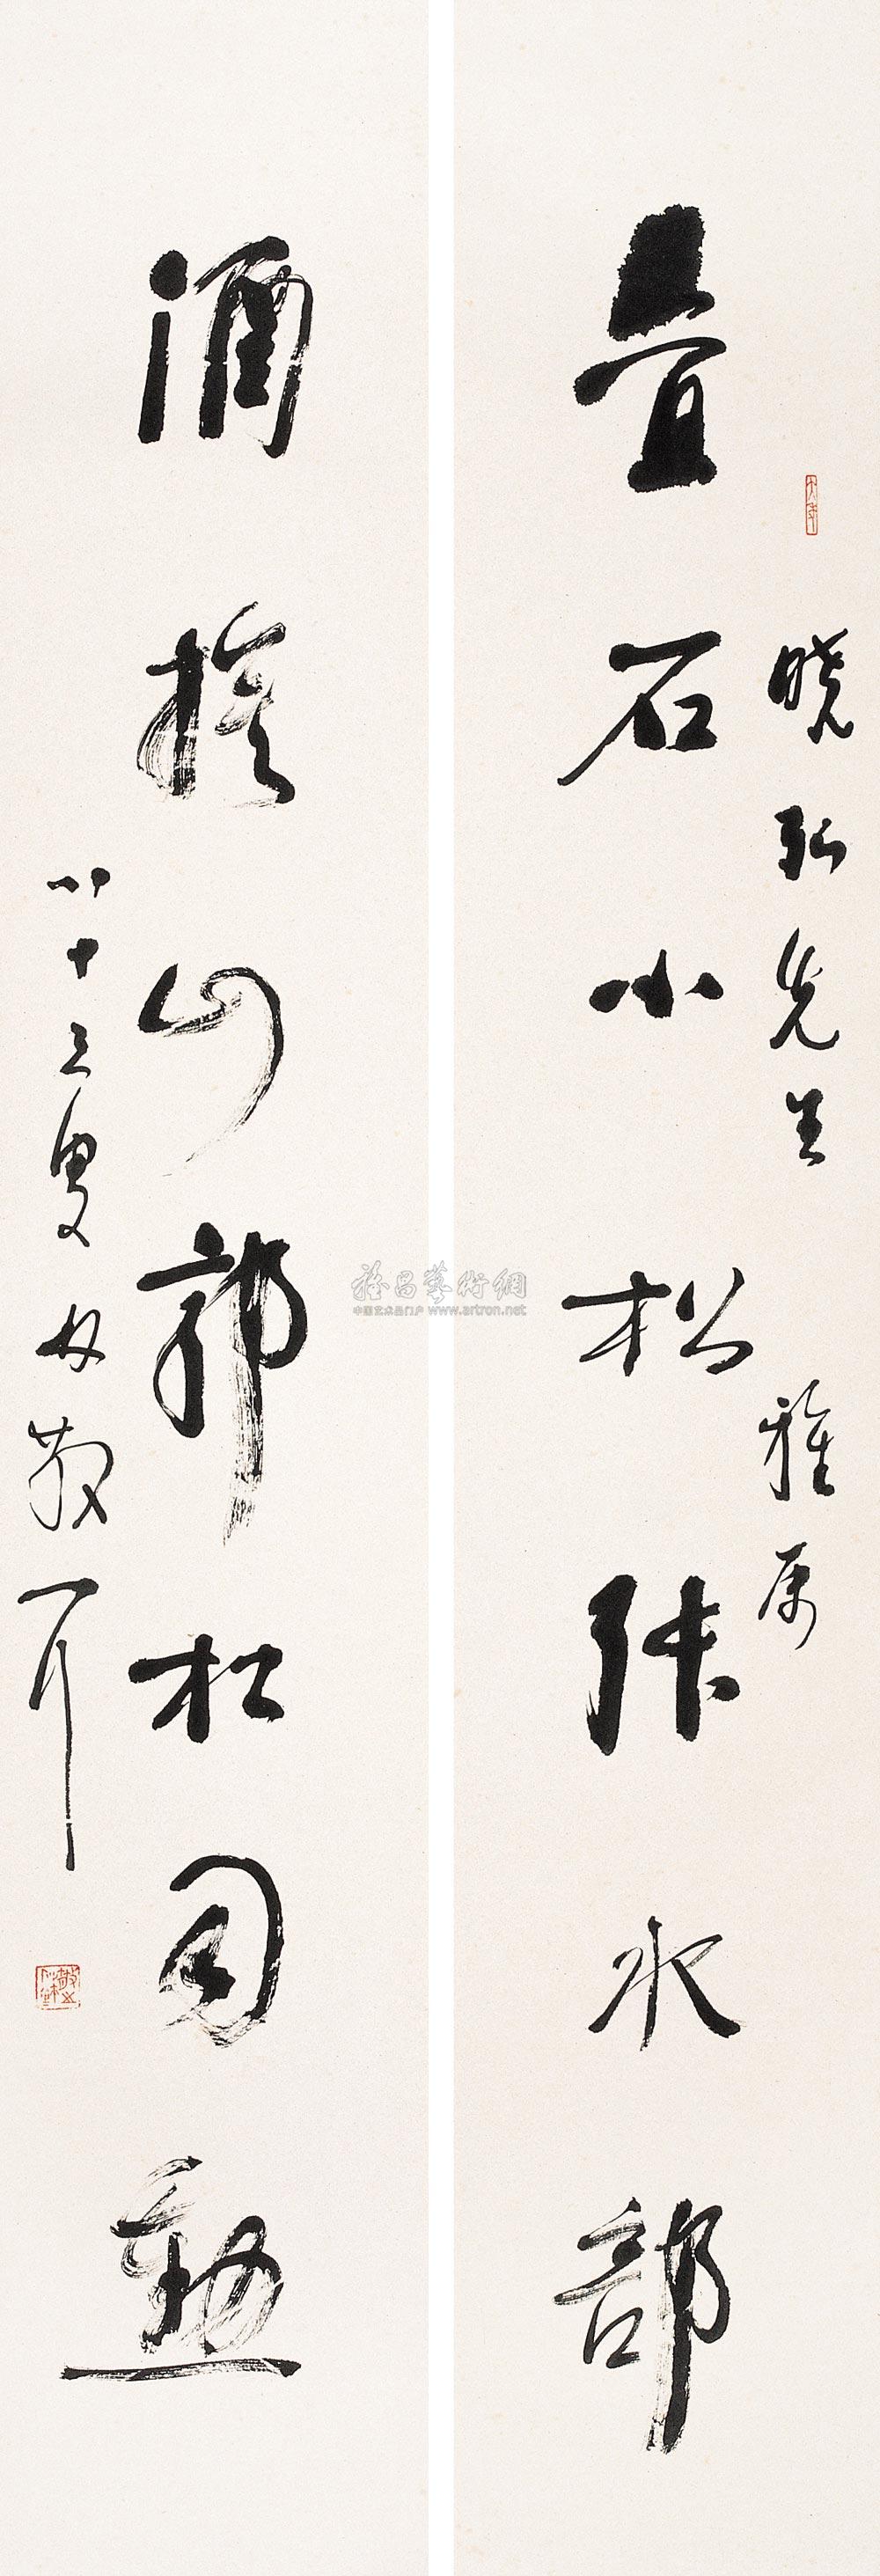 叠石小松张水部
晓弘先生 雅属
酒旗山郭杜司勋
八十三叟林散耳
雅昌藝術網
中国艺术品门户 www.artron.net